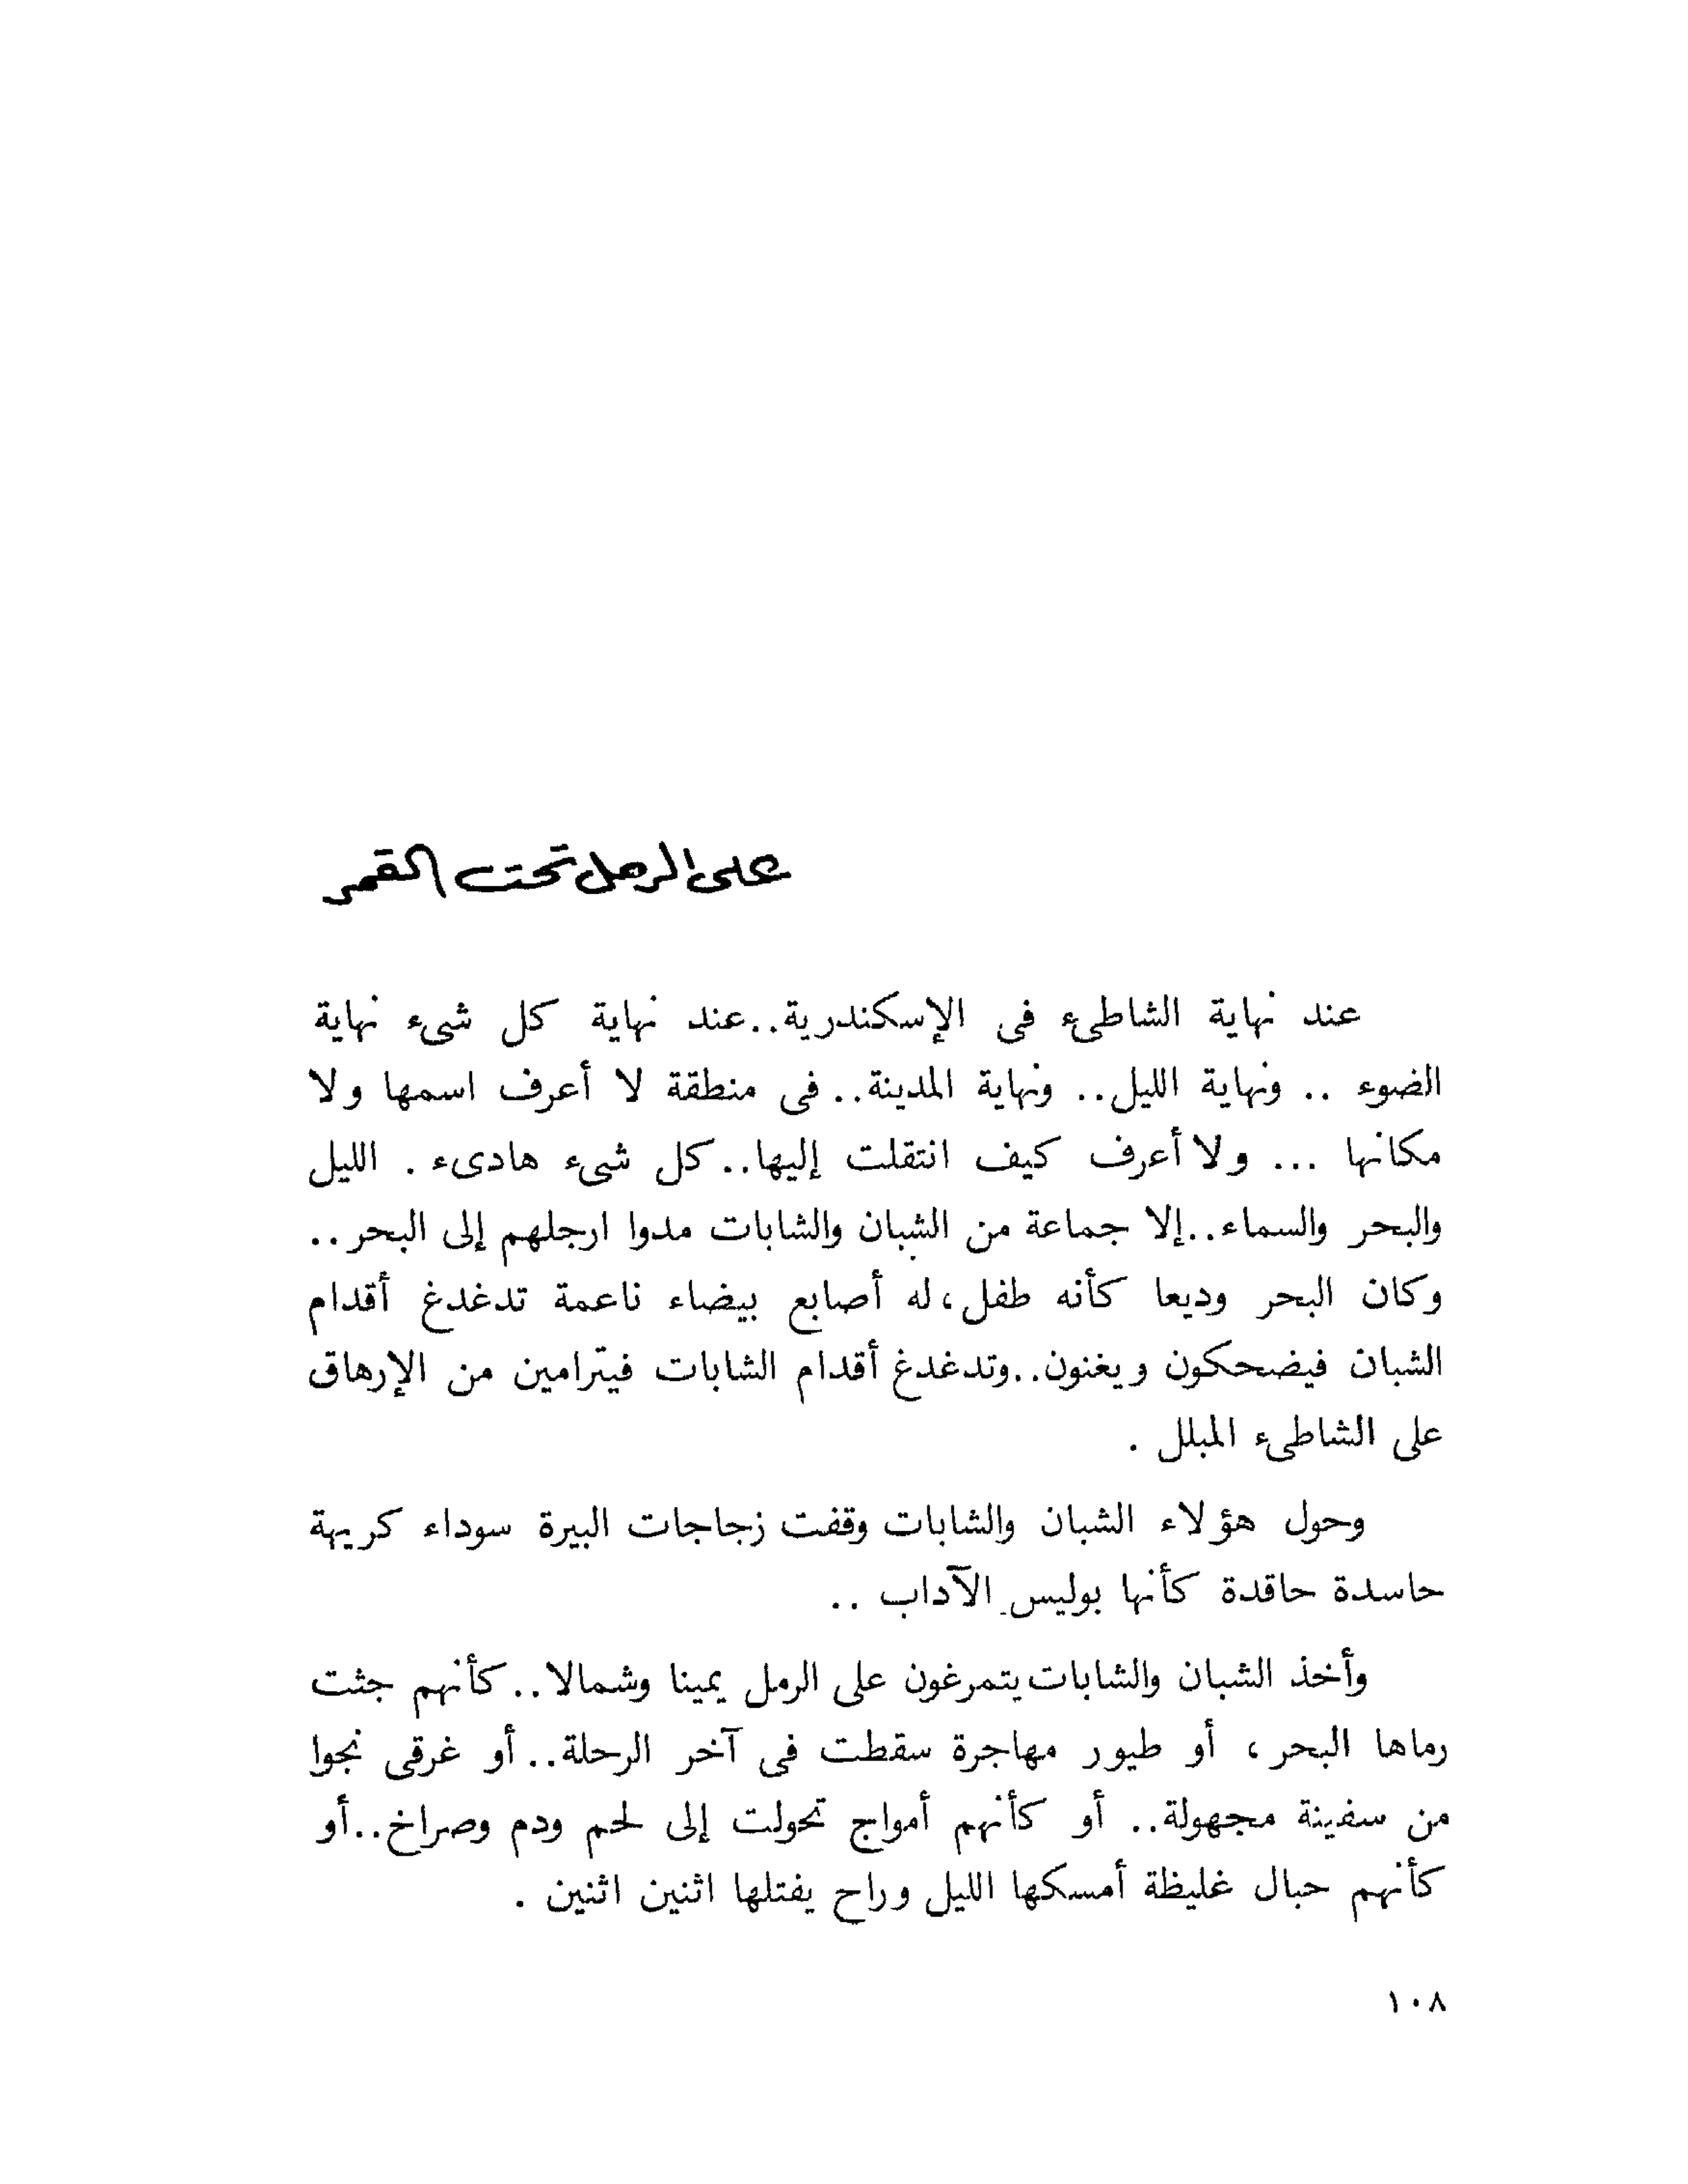 على الرمل تحت القمر
عند نهاية الشاطىء فى الإسكندرية..عند نهاية كل شىء نهاية
الضوء .. ونهاية الليل.. ونهاية المدينة..فى منطقة لا أعرف اسمها ولا
مكانها ... ولا أعرف كيف انتقلت إليها..كل شىء هادىء . الليل
والبحر والسماء..إلا جماعة من الشبان والشابات مدوا ارجلهم إلى البحر..
وكان البحر وديعا كأنه طفل،له أصابع بيضاء ناعمة تدغدغ أقدام
الشبان فيضحكون ويغنون..وتدغدغ أقدام الشابات فيترامين من الإرهاق
على الشاطىء المبلل .
وحول هؤلاء الشبان والشابات وقفت زجاجات البيرة سوداء كريهة
حاسدة حاقدة كأنها بوليس الآداب ..
وأخذ الشبان والشابات يتمرغون على الرمل يمينا وشمالا..كأنهم جثت
رماها البحر، أو طيور مهاجرة سقطت فى آخر الرحلة..أو غرقى نجوا
من سفينة مجهولة.. أو كأنهم أمواج تحولت إلى لحم ودم وصراخ..أو
كأنهم حبال غليظة أمسكها الليل وراح يفتلها اثنين اثنين .
١٠٨